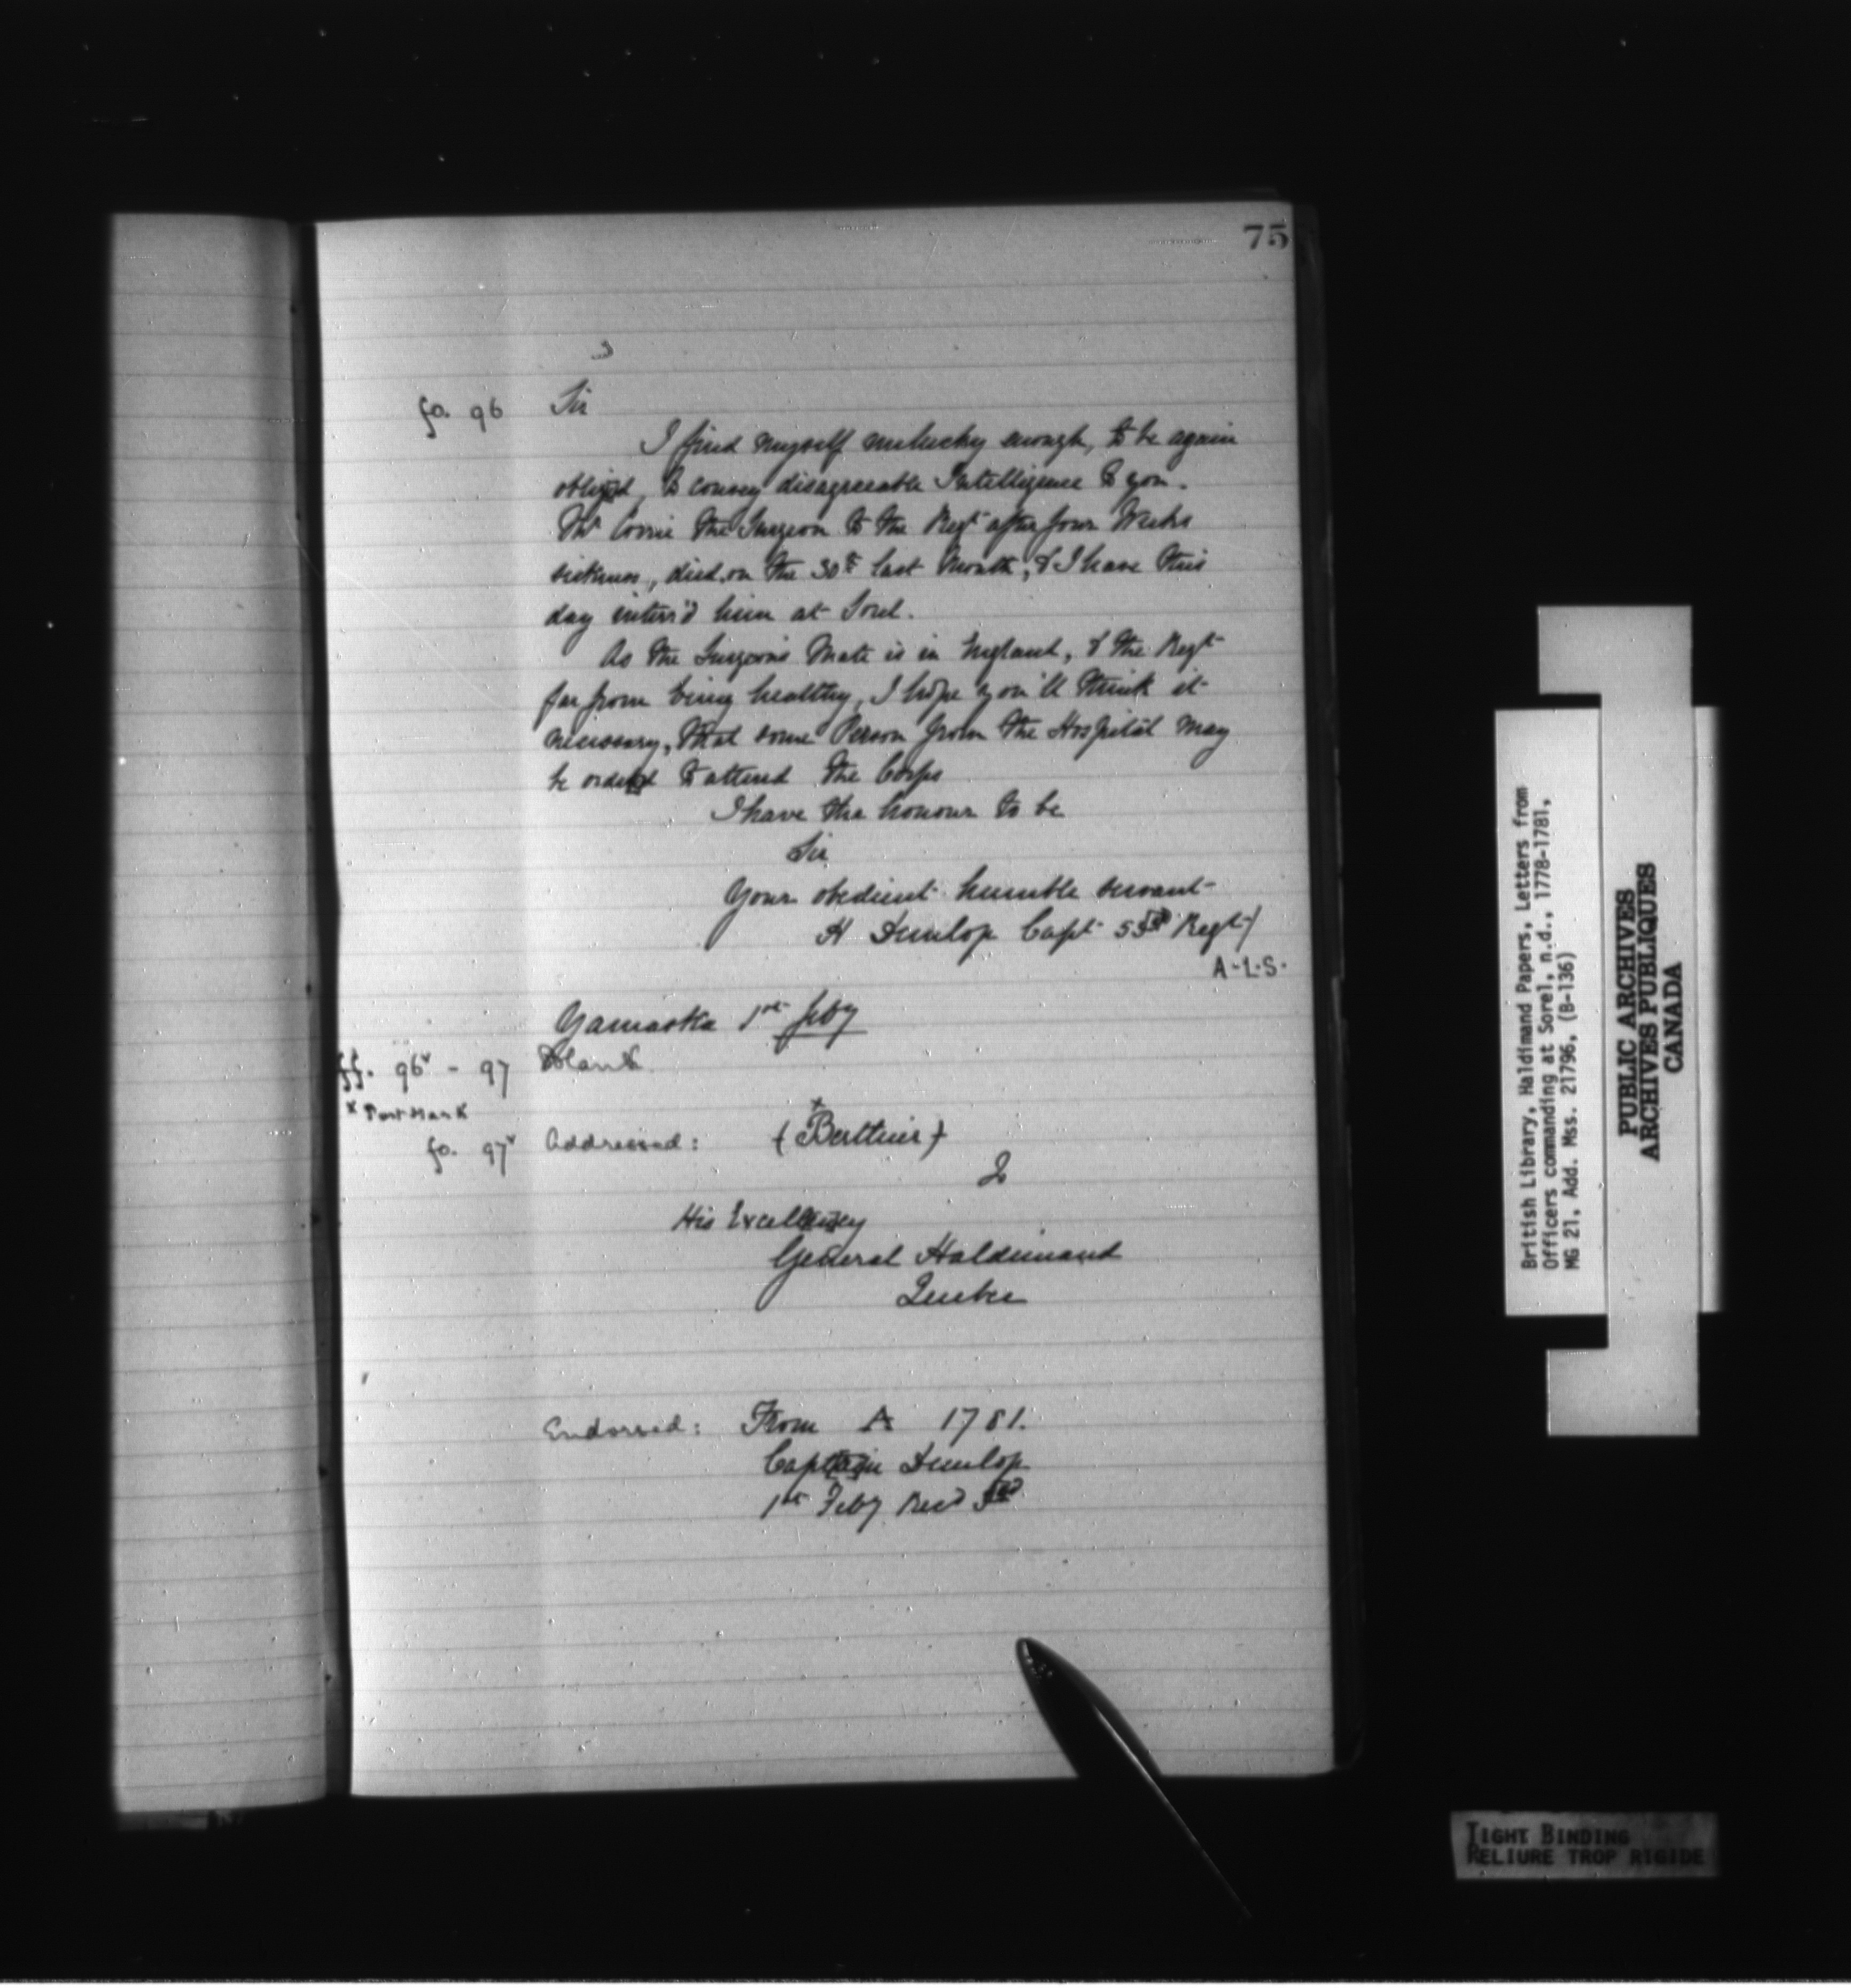 75
fo. 96 Sir
I find myself unlucky enough, to be again
obliged, to convey disagreeable Intelligence to you.
Mr Corrie the Surgeon to the Regt after four Weeks
sickness, died on the 30th last Month, & I have this
day interr'd him at Sorel.
As the Surgeons Mate is in England, & the Regt
far from being healthy, I hope you'll think it
necessary, that some Person from the Hospital may
be orderd to attend the Corps
I have the honour to be
Sir
Your obedient humble servant
H Dunlop Capt 53rd Regt
A.L.S.
Yamaska 1st feby
ff. 96v - 97 Blank
x Post Mark
fo. 97v Addressed: (Berthier)
To
His Excellency
General Haldimand
Quebec
Endorsed: From A 1781.
Captain Dunlop
1st Feby Recd
British Library, Haldimand Papers, Letters from
Officers commanding at Sorel, n.d., 1778-1781,
MG 21, Add. Mss. 21796, (B-136)
PUBLIC ARCHIVES
ARCHIVES PUBLIQUES
CANADA
TIGHT BINDING
RELIURE TROP RIGIDE